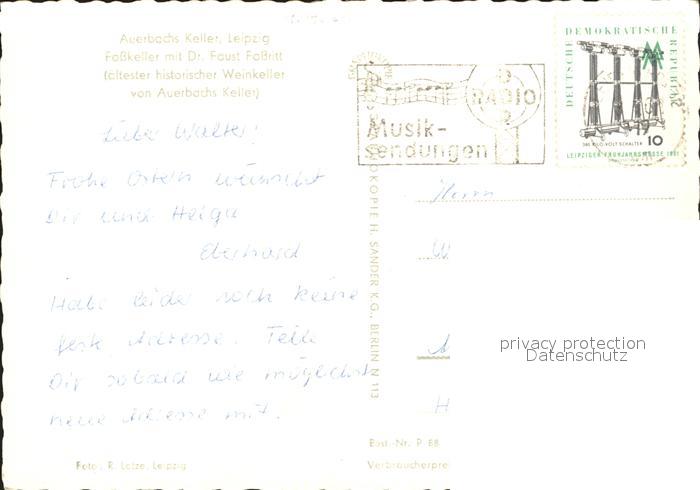 Auerbachs Keller, Leipzig
Faßkeller mit Dr. Faust Faßritt
(ältester historischer Weinkeller
von Auerbachs Keller)
Liebe Walter!
Frohe Ostern wünscht
Dir und Helga
Eberhard
Habe leider noch keine
feste Adresse. Teile
Dir sobald wie möglichst
neue Adresse mit.
Foto: R. Lotze, Leipzig
RADIO
DDR
Musik-
sendungen
DEUTSCHE DEMOKRATISCHE REPUBLIK
380 KILO-VOLT SCHALTER 10
LEIPZIGER FRÜHJAHRSMESSE 1961
H. SANDER K.G., BERLIN N 113
Herrn
W
A
H
privacy protection
Datenschutz
Best.-Nr. P 88
Verbraucherpre